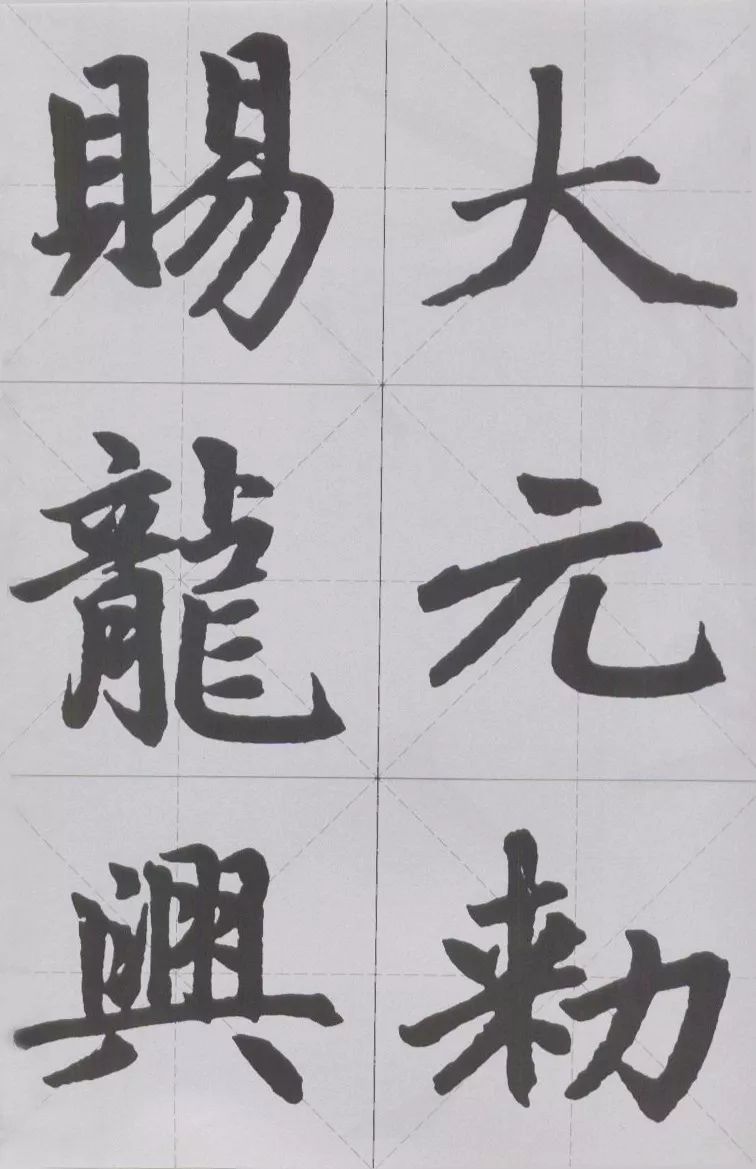 大元勑
賜龍興